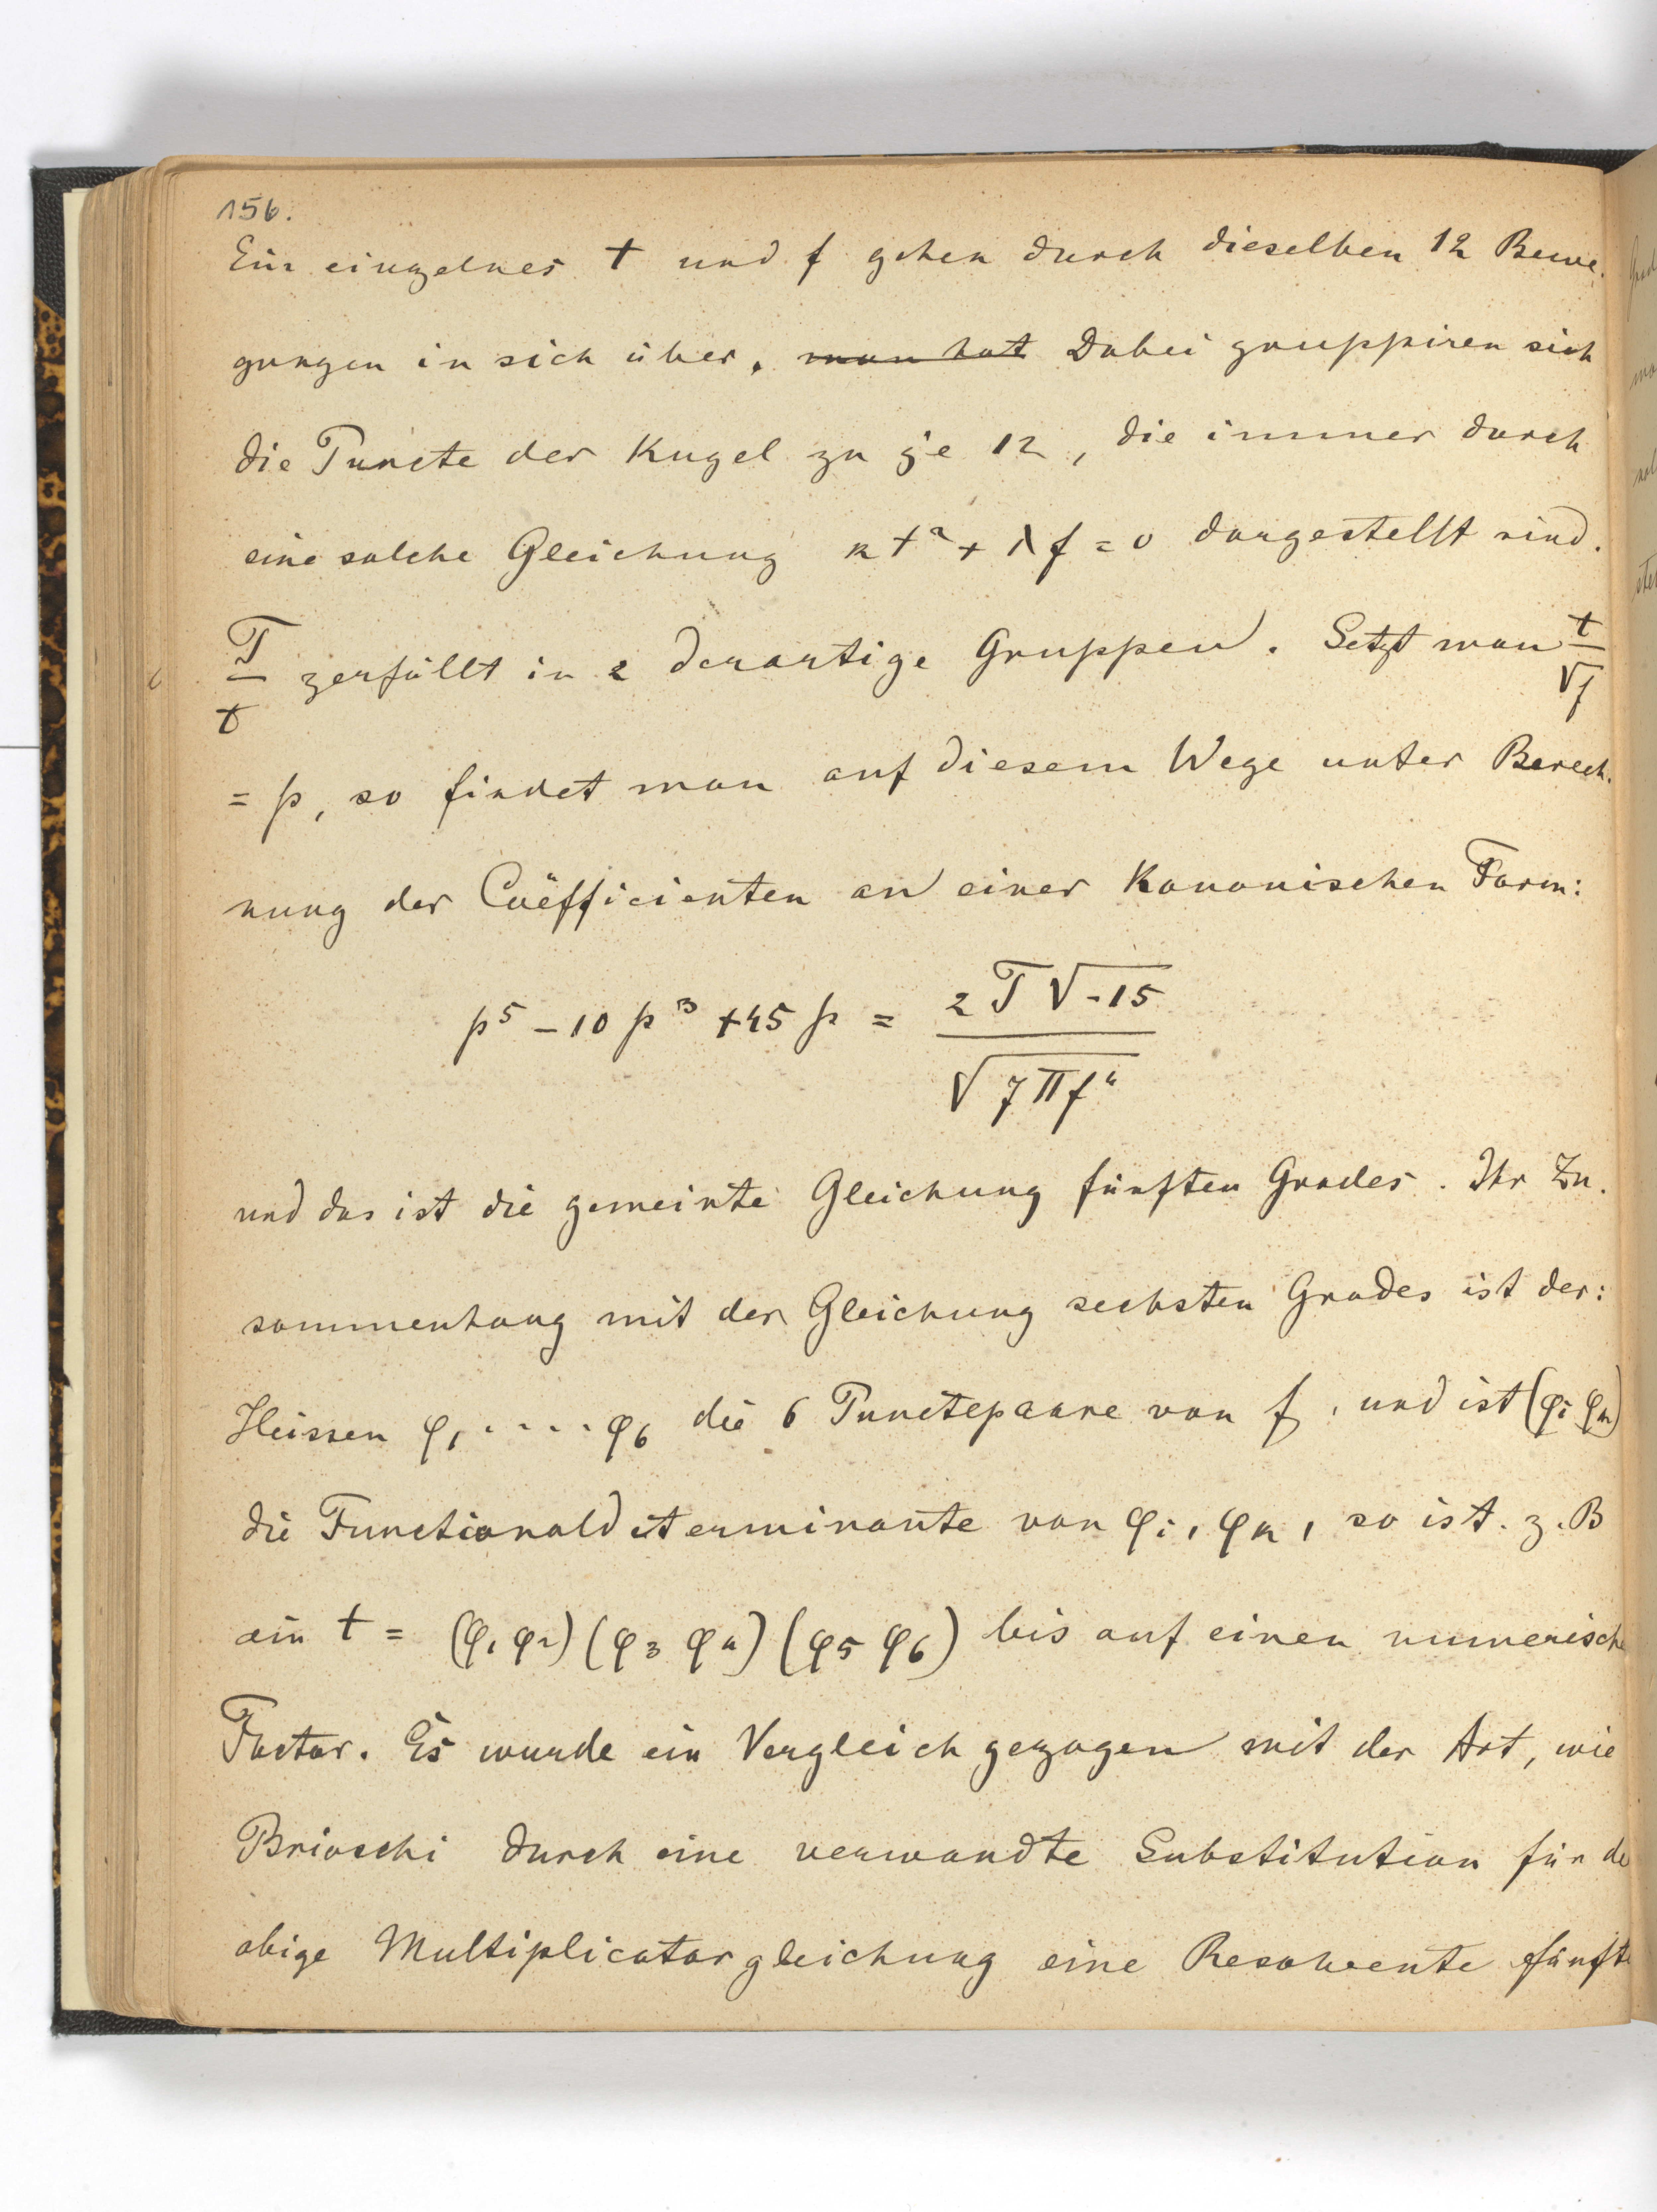 156.
Ein einzelnes t und f gehen durch dieselben 12 Bewe-
gungen in sich über. man hat Dabei gruppiren sich
die Puncte der Kugel zu je 12, die immer durch
eine solche Gleichung κt² + λf = 0 dargestellt sind.
T/t zerfällt in 2 derartige Gruppen. Setzt man t/√f
= p, so findet man auf diesem Wege unter Berech-
nung der Coëfficienten an einer Kanonischen Form:
p⁵ - 10 p³ + 45 p = 2T√-15 / √7πf⁴
und das ist die gemeinte Gleichung fünften Grades. Ihr Zu-
sammenhang mit der Gleichung sechsten Grades ist der:
Heissen φ₁ ..... φ₆ die 6 Punctepaare von f, und ist (φi φk)
die Functionaldeterminante von φi, φk, so ist. z. B
ein t = (φ₁ φ₂) (φ₃ φ₄) (φ₅ φ₆) bis auf einen numerische
Factor. Es wurde ein Vergleich gezogen mit der Art, wie
Brioschi durch eine verwandte Substitution für de
obige Multiplicatorgleichung eine Resolvente fünfte